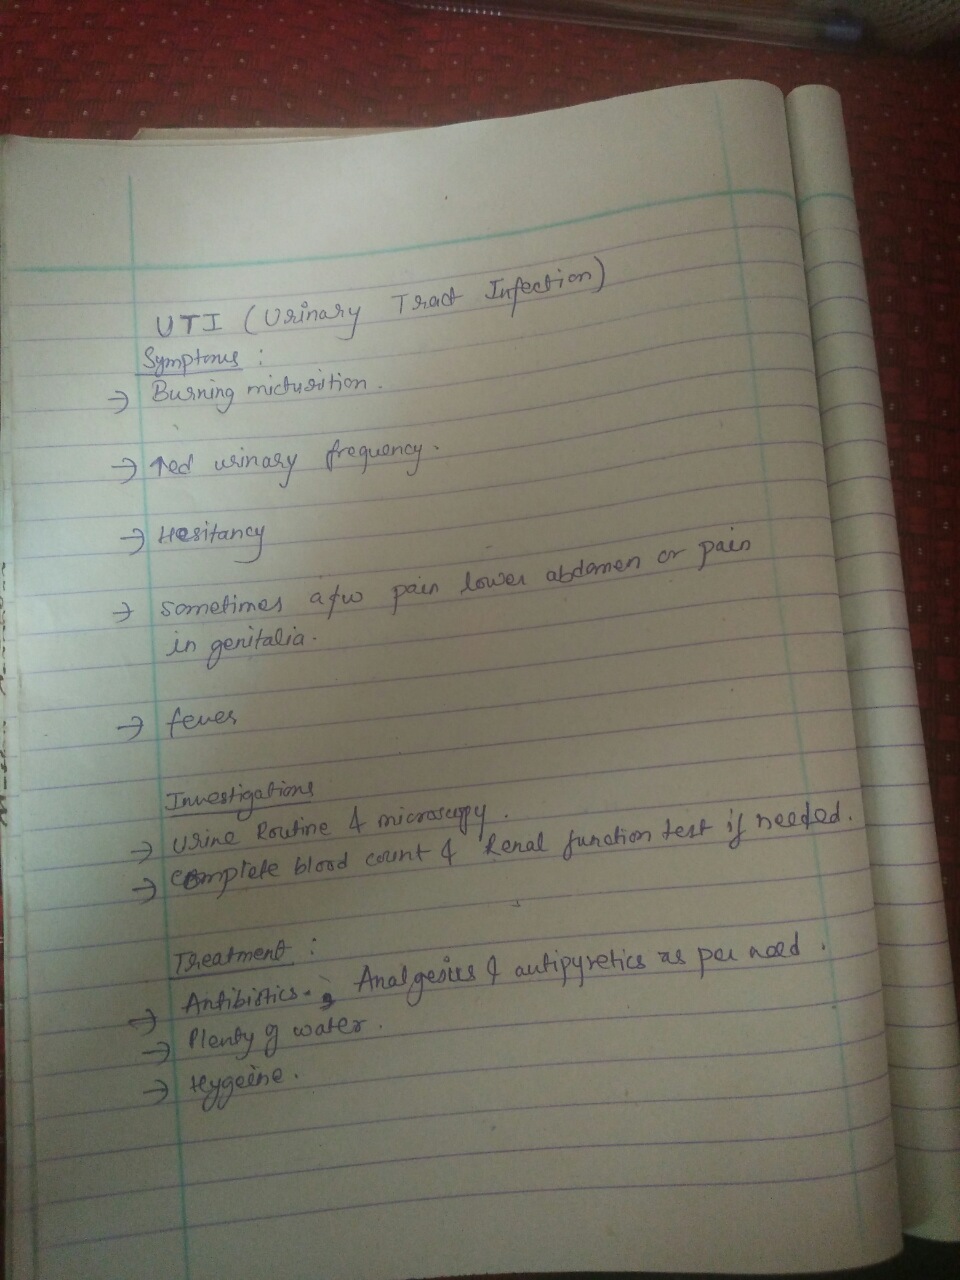 UTI (Urinary Tract Infection)
Symptoms :
→ Burning micturition.
→ ↑ed urinary frequency.
→ Hesitancy
→ sometimes a/w pain lower abdomen or pain
in genitalia.
→ fever
Investigations
→ Urine Routine & microscopy.
→ complete blood count & Renal function test if needed.
Treatment :
→ Antibiotics., Analgesics & antipyretics as per need.
→ Plenty of water.
→ Hygeine.